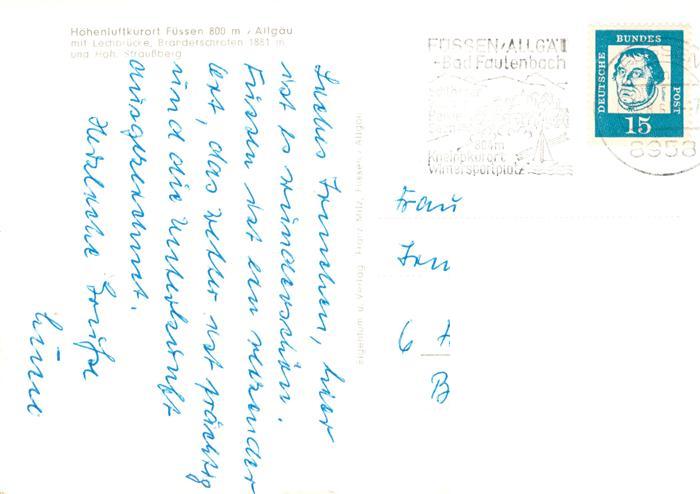 Höhenluftkurort Füssen 800 m / Allgäu
mit Lechbrücke, Branderschrofen 1881 m
und Hoh. Straußberg
Liebes Irmchen, hier
ist es wunderschön.
Füssen ist ein reizender
Ort, das Wetter ist prächtig
und die Unterkunft
ausgezeichnet.
Herzliche Grüße
Eigentum u. Verlag: Franz Milz, Füssen / Allgäu
FÜSSEN/ALLGÄU
Bad Faulenbach
800m
Kneippkurort
Wintersportplatz
DEUTSCHE BUNDES POST
15
8958
Frau
Irm
6
B